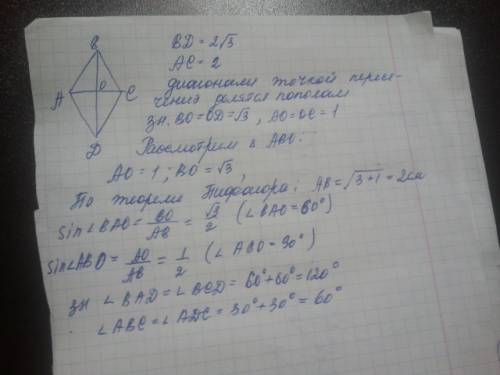 B
A
O
C
D
BD = 2√3
AC = 2
диагонали точкой пересе-
чения делятся пополам
зн. BO=OD=√3, AO=OC=1
Рассмотрим Δ ABO:
AO = 1; BO = √3,
По теореме Пифагора: AB = √3+1 = 2см
sin∠BAO = BO/AB = √3/2 (∠BAO=60°)
sin∠ABO = AO/AB = 1/2 (∠ABO=30°)
зн ∠BAD = ∠BCD = 60°+60° = 120°
∠ABC = ∠ADC = 30°+30° = 60°